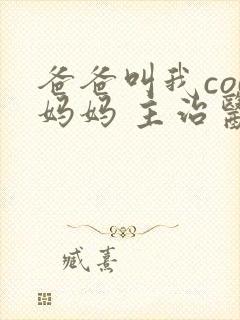 爸爸叫我co
妈妈 主治
臧熹